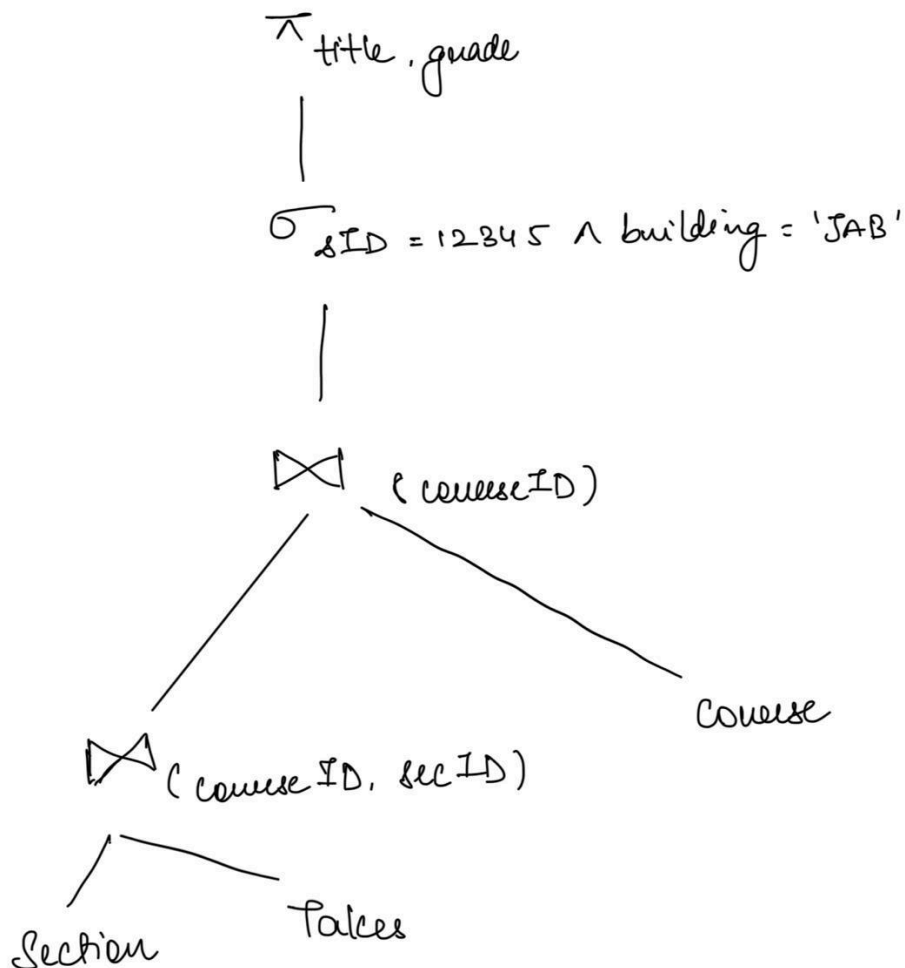 π title, grade
σ sID = 12345 ∧ building = 'JAB'
⋈ (courseID)
course
⋈ (courseID, secID)
Takes
Section